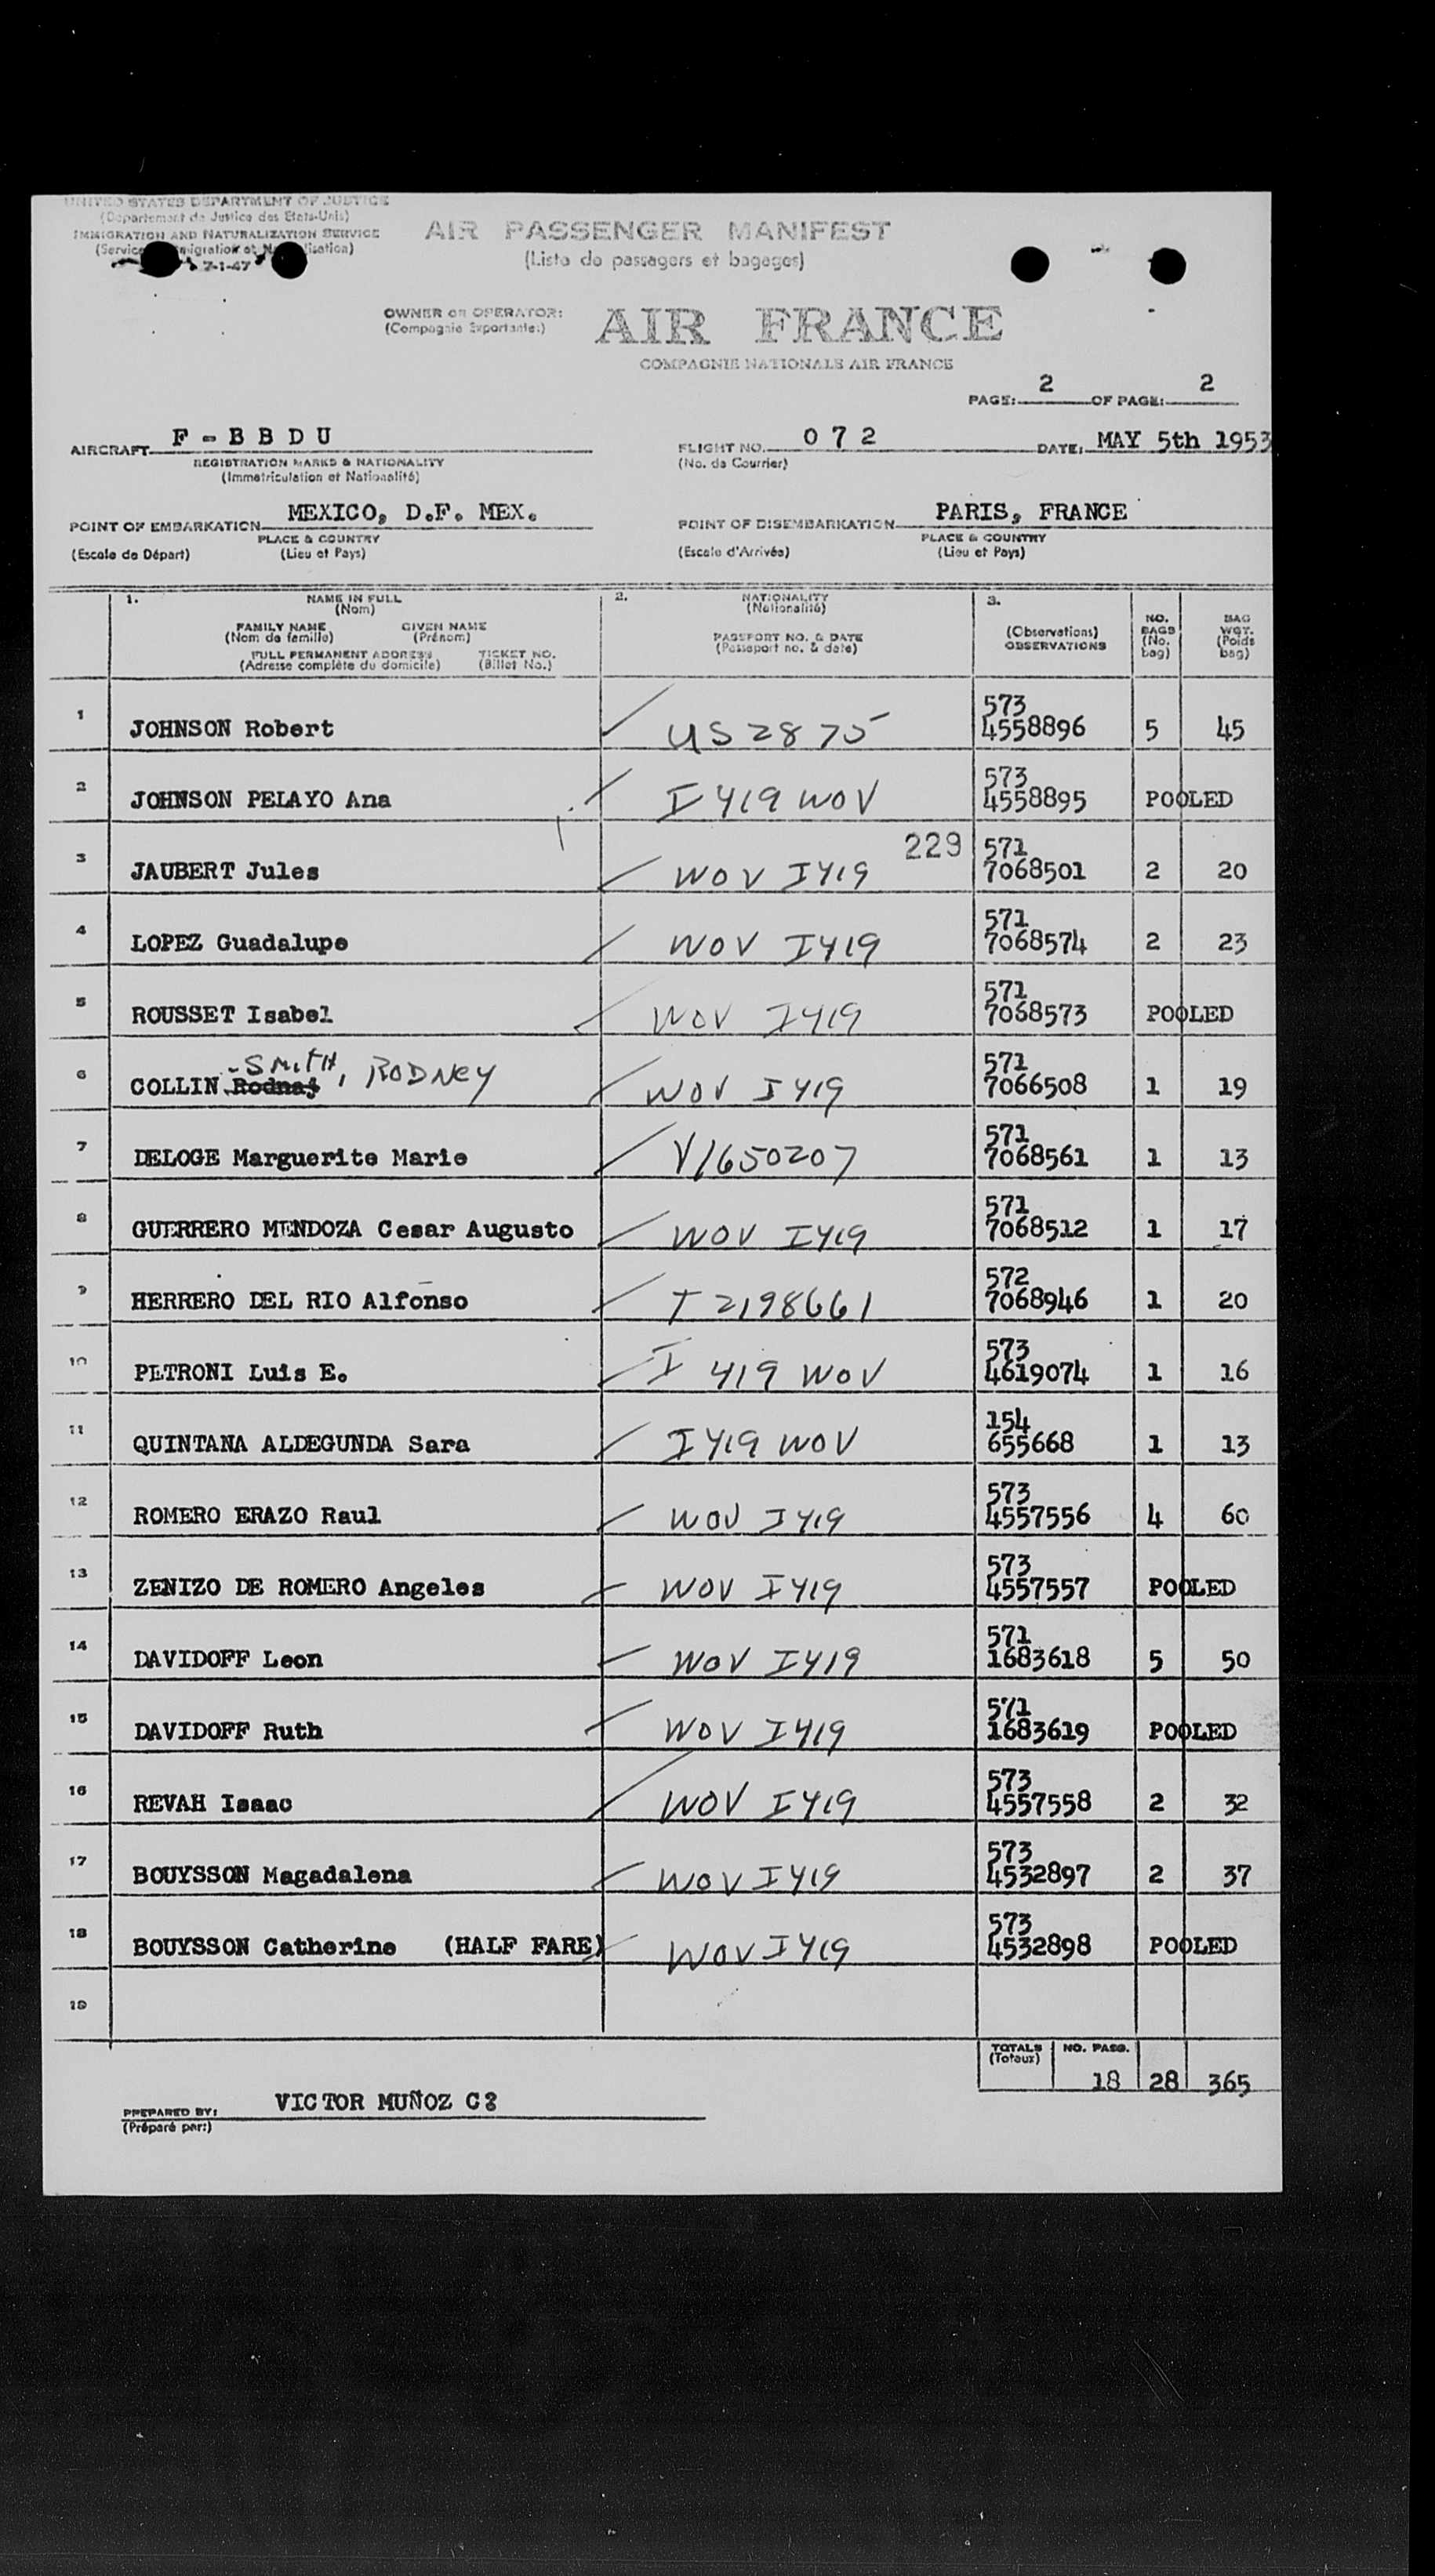 UNITED STATES DEPARTMENT OF JUSTICE
(Departement de Justice des Etats-Unis)
IMMIGRATION AND NATURALIZATION SERVICE
7-1-47
AIR PASSENGER MANIFEST
(Liste de passagers et bagages)
OWNER OR OPERATOR:
(Compagnie Exportante:)
AIR FRANCE
COMPAGNIE NATIONALE AIR FRANCE
PAGE: 2 OF PAGE: 2
AIRCRAFT F - B B D U
REGISTRATION MARKS & NATIONALITY
(Immatriculation et Nationalité)
FLIGHT NO. 0 7 2
(No. de Courrier)
DATE: MAY 5th 1953
POINT OF EMBARKATION MEXICO, D.F. MEX.
PLACE & COUNTRY
(Escale de Départ) (Lieu et Pays)
POINT OF DISEMBARKATION PARIS, FRANCE
PLACE & COUNTRY
(Escale d'Arrivée) (Lieu et Pays)
1. NAME IN FULL
(Nom)
FAMILY NAME GIVEN NAME
(Nom de famille) (Prénom)
FULL PERMANENT ADDRESS TICKET NO.
(Adresse complète du domicile) (Billet No.)
2. NATIONALITY
(Nationalité)
PASSPORT NO. & DATE
(Passeport no. & date)
3.
(Observations)
OBSERVATIONS
NO.
BAGS
(No.
bag)
BAG
WGT.
(Poids
bag)
573
1 JOHNSON Robert US 2875 4558896 5 45
573
2 JOHNSON PELAYO Ana I 419 WOV 4558895 POOLED
229 571
3 JAUBERT Jules WOV I419 7068501 2 20
571
4 LOPEZ Guadalupe WOV I419 7068574 2 23
571
5 ROUSSET Isabel WOV I419 7068573 POOLED
-SMITH, RODNEY 571
6 COLLIN Rodnaj WOV I419 7066508 1 19
571
7 DELOGE Marguerite Marie V1650207 7068561 1 13
571
8 GUERRERO MENDOZA Cesar Augusto WOV I419 7068512 1 17
572
9 HERRERO DEL RIO Alfonso T 2198661 7068946 1 20
573
10 PETRONI Luis E. I 419 WOV 4619074 1 16
154
11 QUINTANA ALDEGUNDA Sara I419 WOV 655668 1 13
573
12 ROMERO ERAZO Raul WOV I419 4557556 4 60
573
13 ZENIZO DE ROMERO Angeles WOV I419 4557557 POOLED
571
14 DAVIDOFF Leon WOV I419 1683618 5 50
571
15 DAVIDOFF Ruth WOV I419 1683619 POOLED
573
16 REVAH Isaac WOV I419 4557558 2 32
573
17 BOUYSSON Magadalena WOV I419 4532897 2 37
573
18 BOUYSSON Catherine (HALF FARE) WOV I419 4532898 POOLED
19
TOTALS NO. PASS.
(Totaux) 18 28 365
PREPARED BY: VICTOR MUÑOZ C:
(Préparé par:)